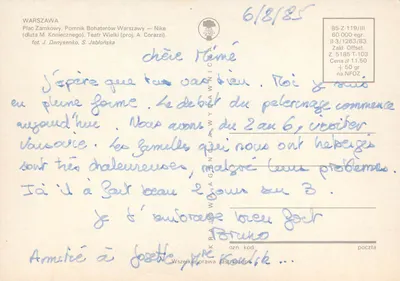 WARSZAWA
Plac Zamkowy, Pomnik Bohaterów Warszawy — Nike
(dłuta M. Koniecznego), Teatr Wielki (proj. A. Corazzi)
fot. J. Donysenko, S. Jabłońska
6/8/85
BS-Z-119/III
60.000 egz.
II 3/1283/83
Zakł. Offset.
Z. 5185 T-103
Cena zł 1 1.50
+ gr 50
na NFOZ
chère Mémé
J'espère que tu vas bien. Moi je suis
en pleine forme. Le début du pélerinage commence
aujourd'hui. Nous avons, du 2 au 6, visiter
Varsovie. Les familles qui nous ont hébergés
sont très chaleureuses, malgré leurs problèmes.
Ici il a fait beau 2 jours sur 3.
Je t'embrasse bien fort
Bruno
Amitié à Josette, Mme
kod
poczta